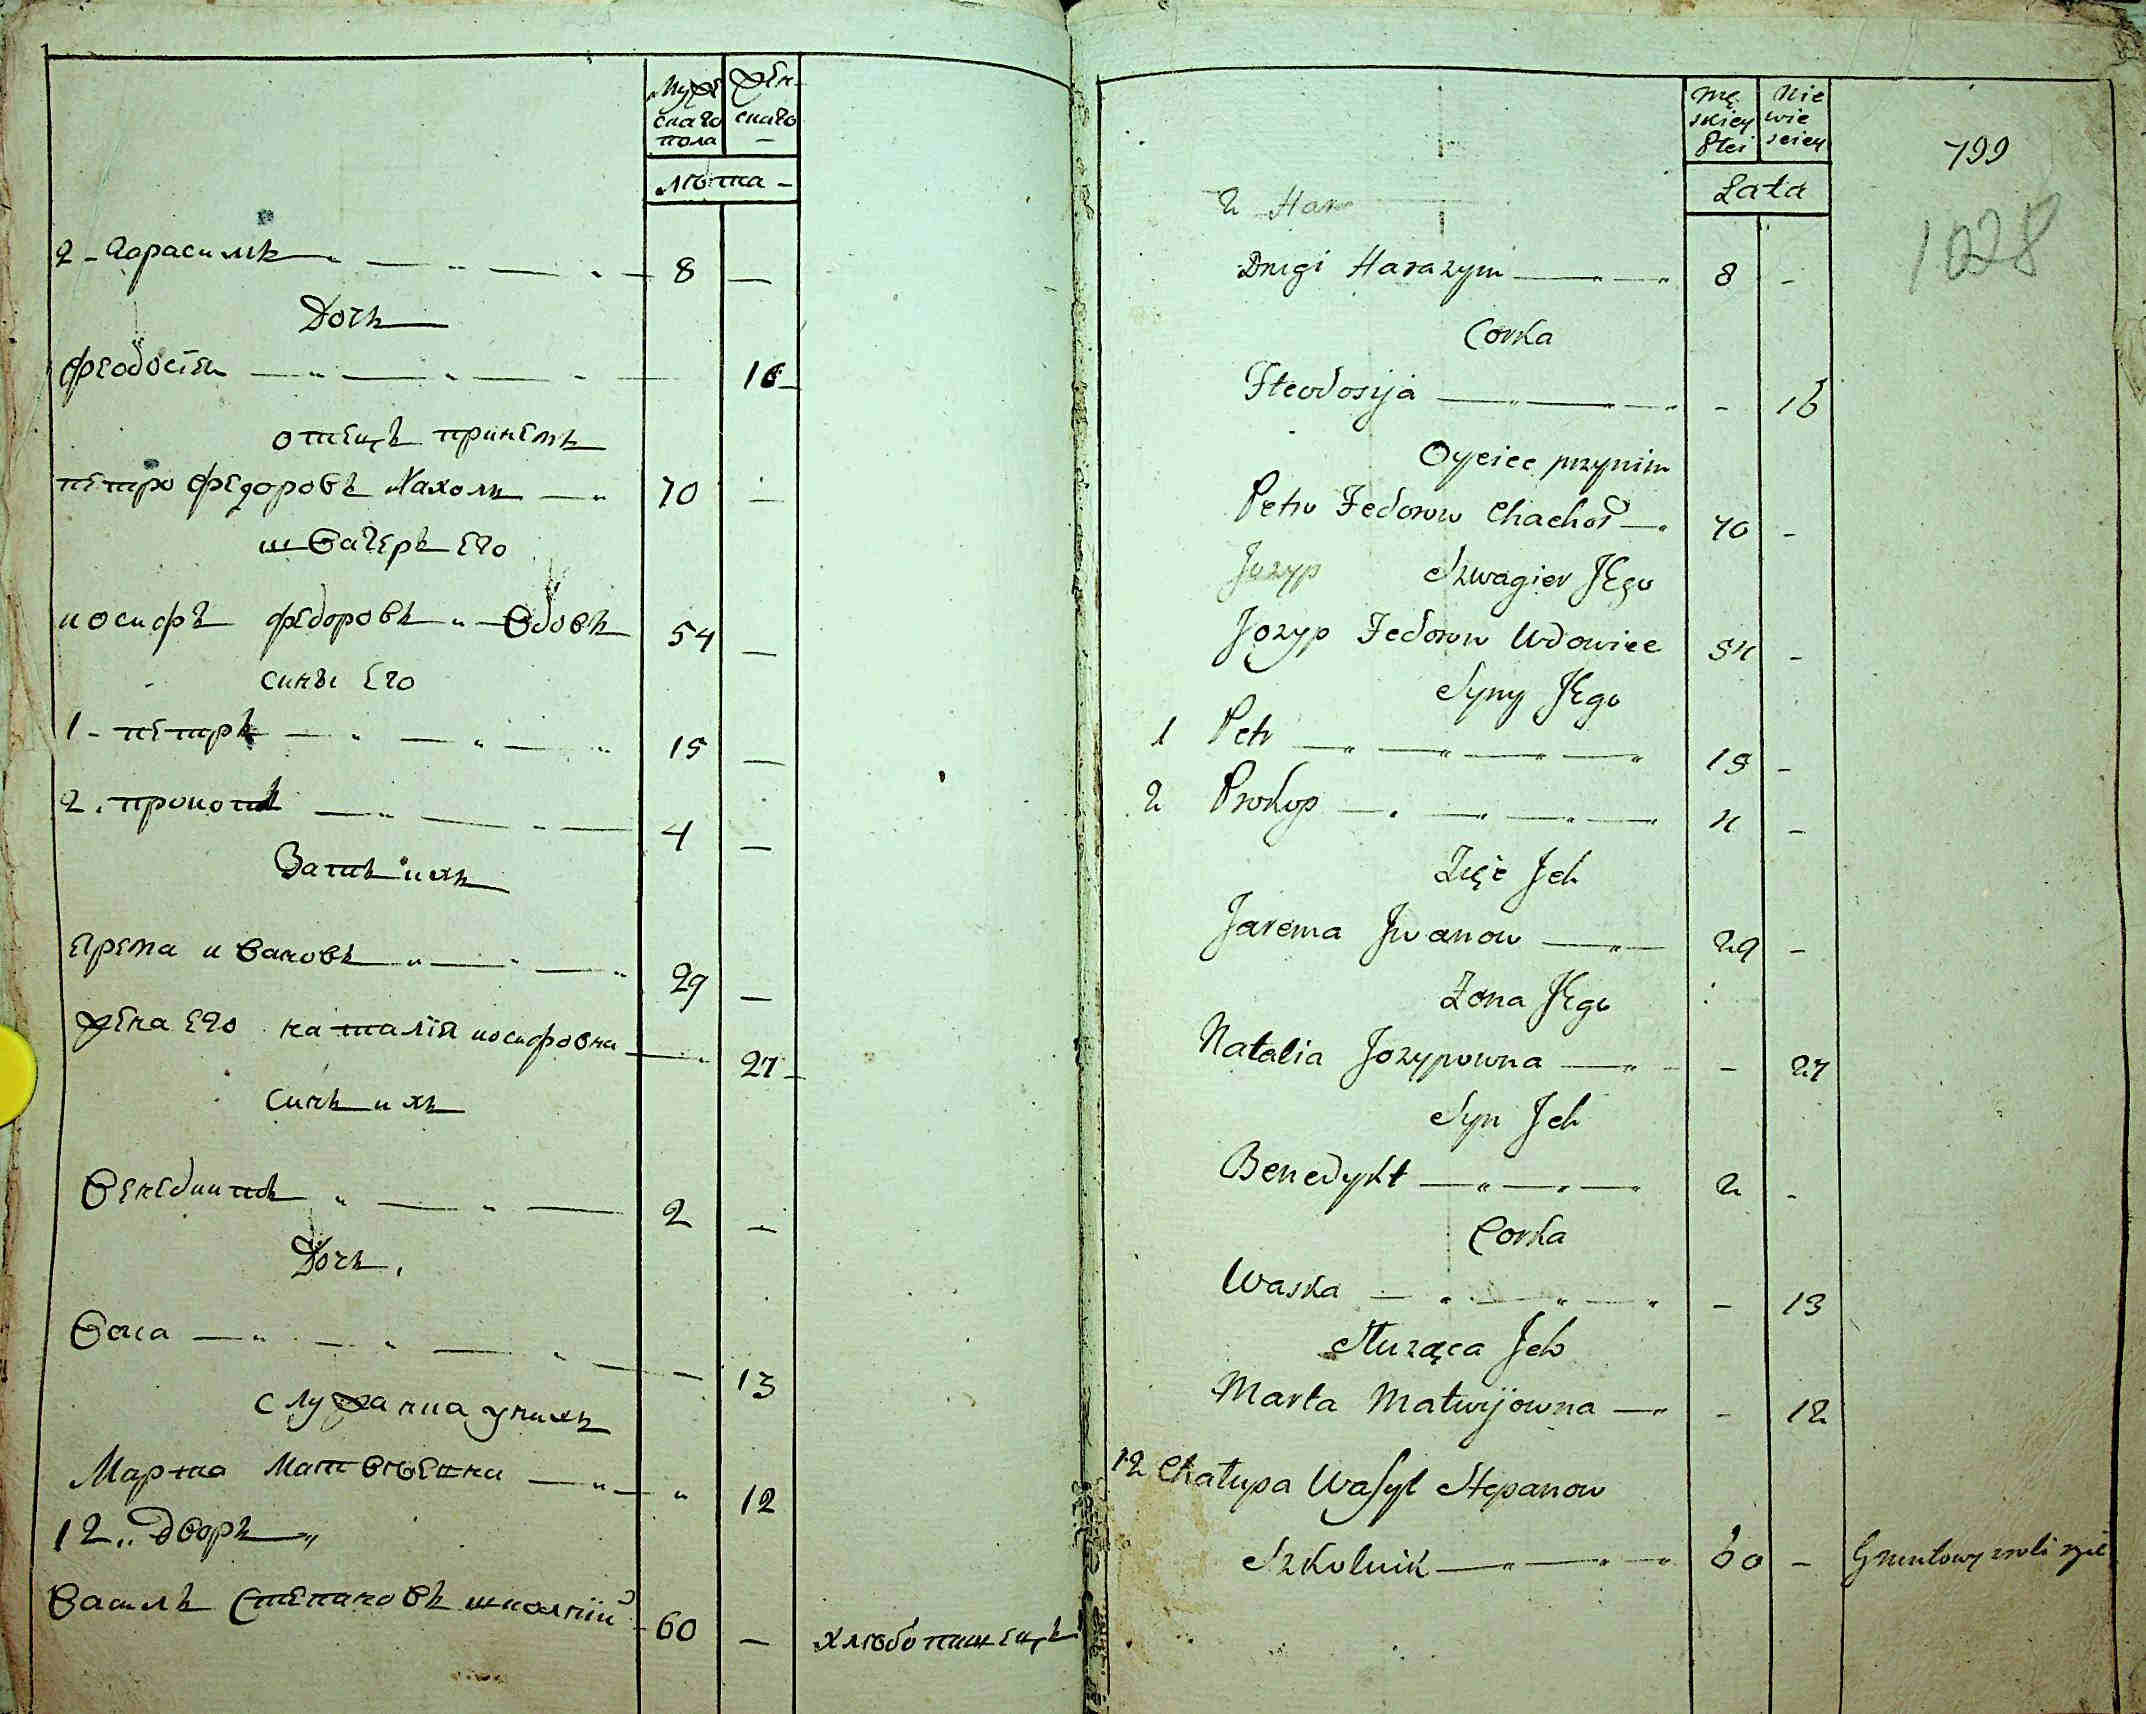 Муже
скаго
пола
Жен
скаго
—
лѣта -
2 - Гарасимъ — „ — „ — 8 —
Дочь
Феодосія — „ — „ — - — 16 -
отецъ принемъ
петро Федоровъ Хахолъ — „ 70 —
шваґеръ Его
иосифъ федоровъ „ вдовъ 54 —
сины Его
1 - петръ — „ — „ — „ 15 —
2. прокопъ — „ — - — 4 —
Зать ихъ
Ярема ивановъ „ — „ — „ 29 —
Жена Его наталія иосифовна — „ 27 -
синъ ихъ
Венедиктъ „ — „ — 2 —
Дочь.
Васка — „ — „ — „ — — 13
служанка униxъ
Марта Матвѣевна — „ — „ 12
12 „ Дворъ „
Василь Степановъ школній 60 — хлѣбопашецъ
Mę
skiey
Płci
Nie
wie
sciey
Lata
799
1028
2 Har
Drugi Harazym — „ — „ 8 -
Corka
Fteodosija — „ — „ — „ - 16
Oyciec przynim
Petro Fedorow Chachoł — „ 70 -
Jozyp Szwagier Jego
Jozyp Fedorow Wdowiec 54 -
Syny Jego
1 Petr — „ — „ — „ — „ 15 -
2 Prokop — „ — „ — „ — „ 4 -
Zięć Jch
Jarema Jwanow — „ — 29 -
Żona Jego
Natalia Jozypowna — „ - - 27
Syn Jch
Benedykt — „ — „ — „ 2 -
Corka
Waska — „ — „ — „ - 13
Służąca Jch
Marta Matwijowna — „ - 12
12 Chałupa Wasyl Stepanow
Szkolnik — „ — „ — „ 60 - Gruntowy z roli żyie